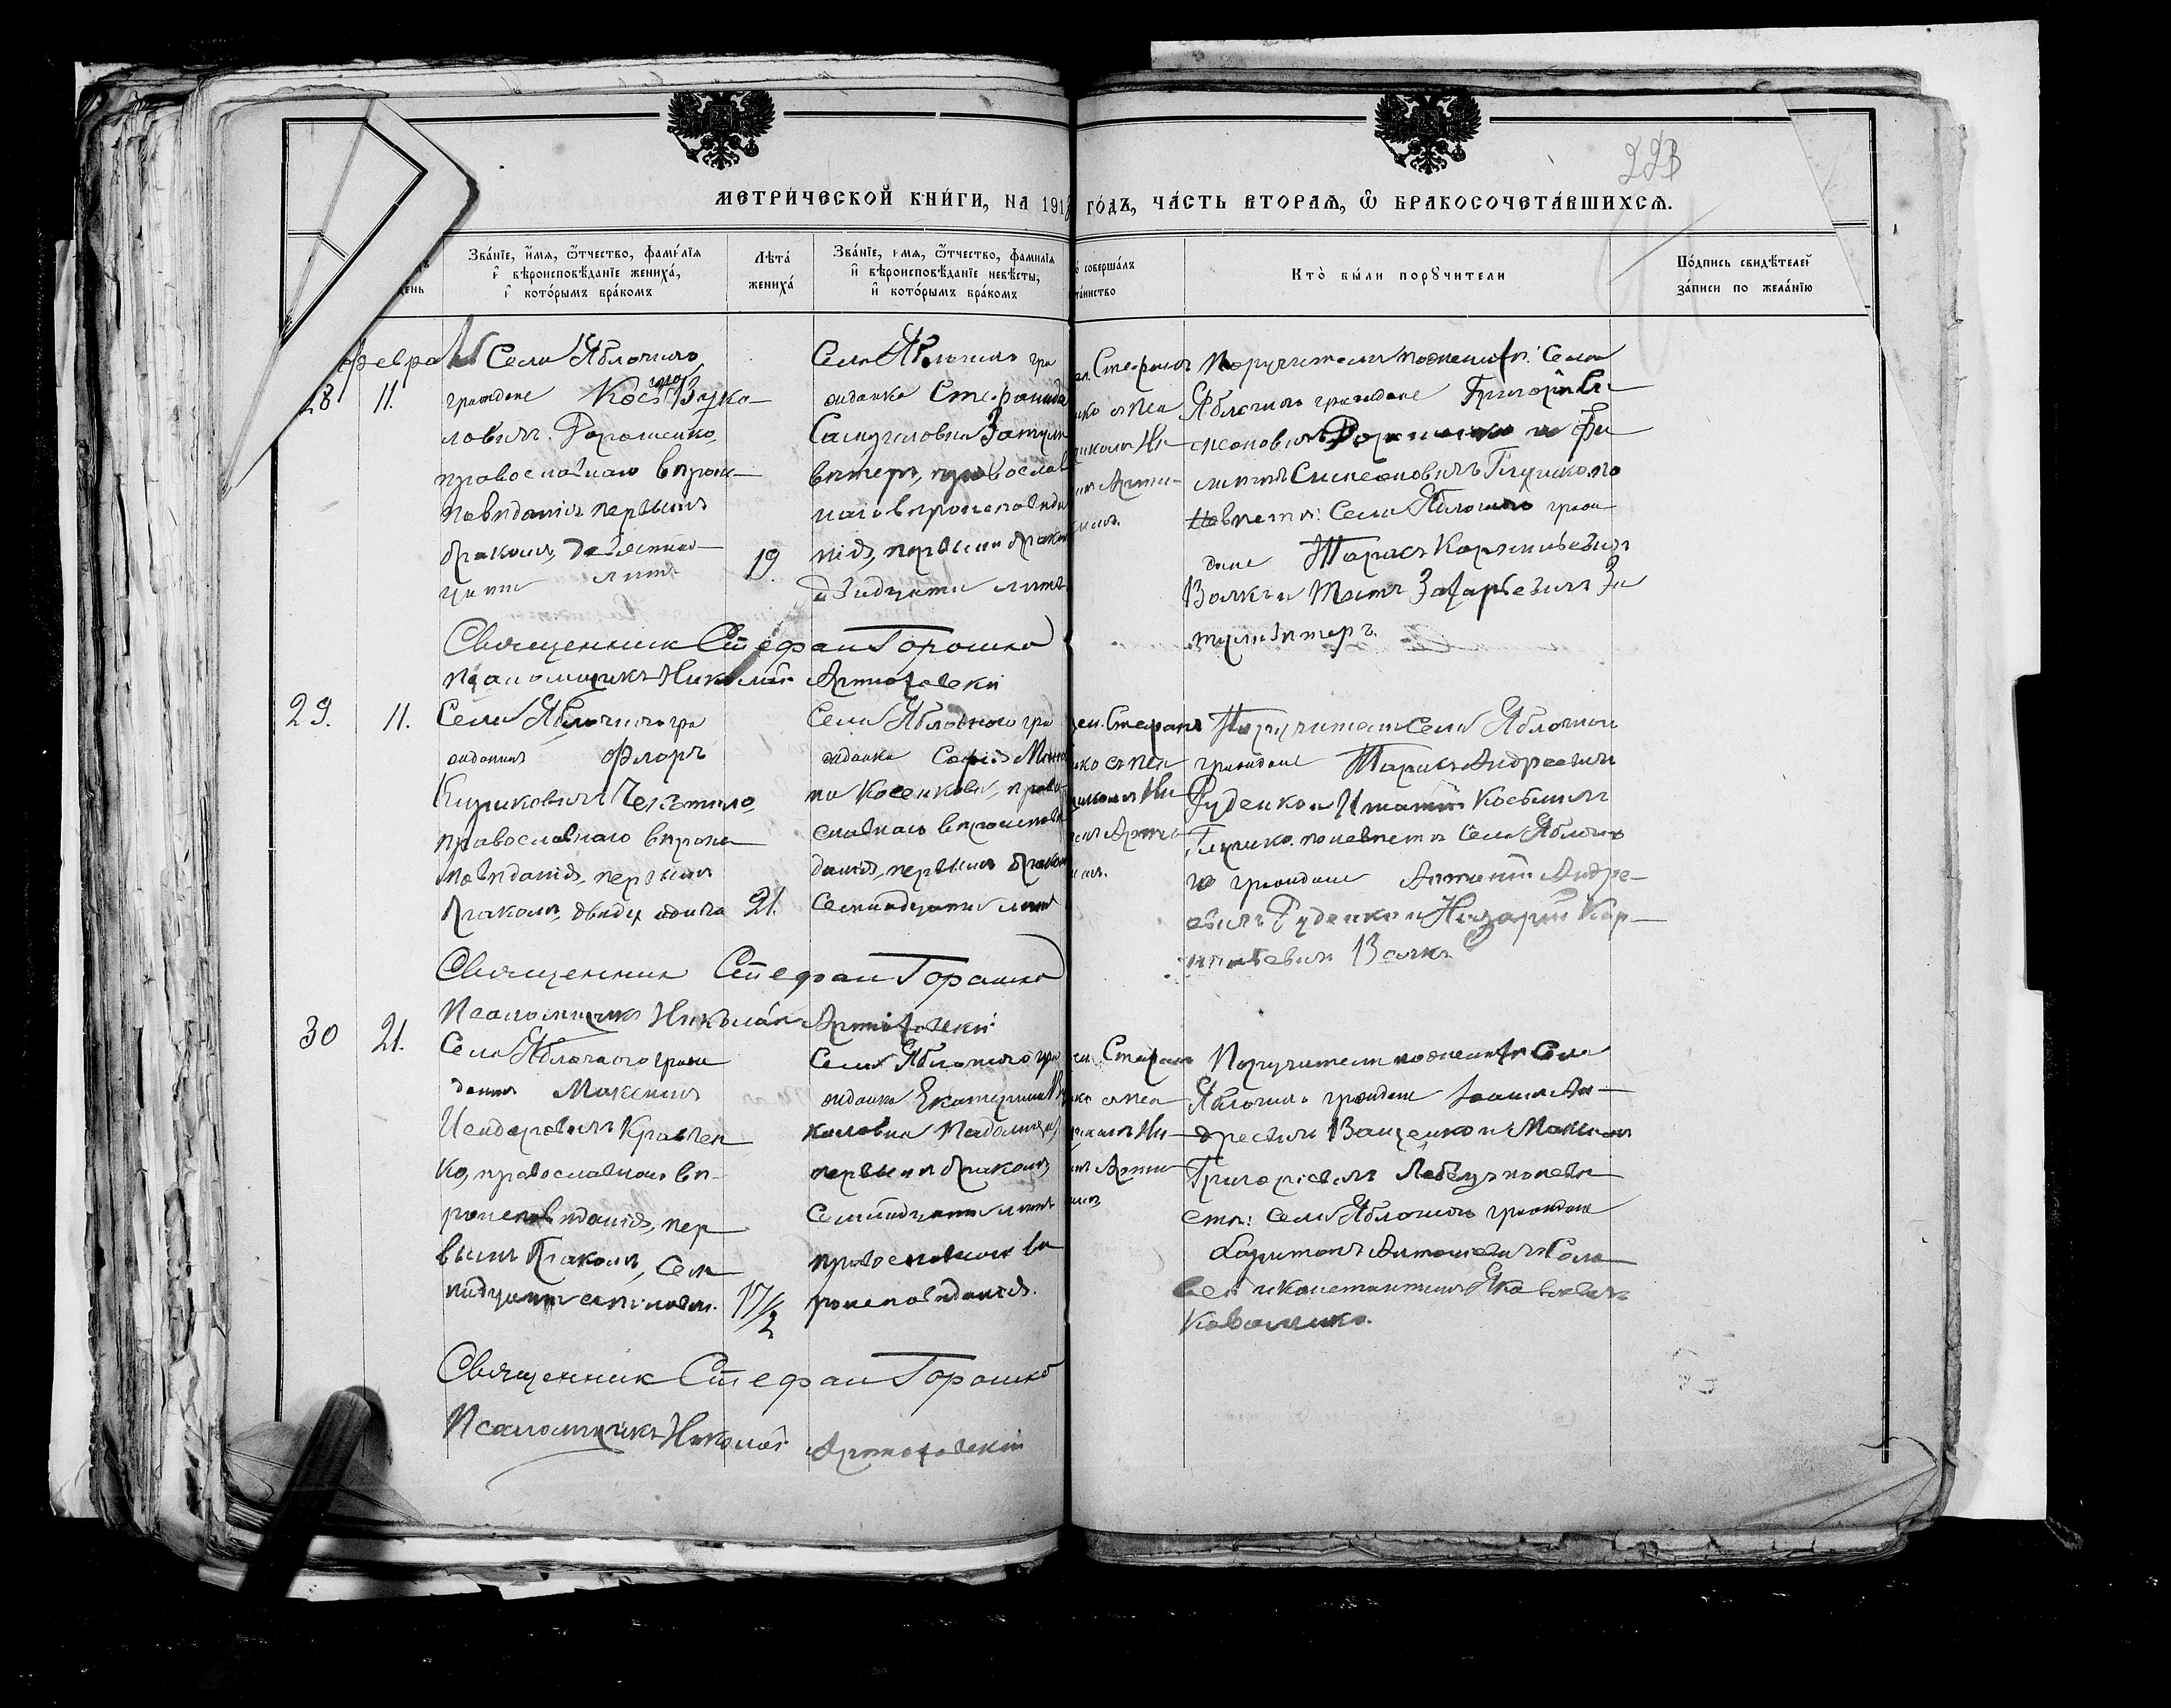 223
МЕТРИ́ЧЕСКОЙ КНИ́ГИ, НА 1918 ГО́ДЪ, ЧА́СТЬ ВТОРАѦ, Ѡ БРАКОСОЧЕТА́ВШИХСѦ.
Зва́нїе, и́мѧ, ѻ҆́тчество, фами́лїѧ
и҆ вѣроисповѣ́данїе жениха̀,
и҆ кото́рымъ бра́комъ
Лѣта̀
жениха̀
Зва́нїе, и́мѧ, ѻ҆́тчество, фамилїѧ
и҆ вѣроисповѣ́данїе невѣ́сты,
и҆ кото́рымъ бра́комъ
совершáлъ
та́инство
Кто̀ бы́ли порꙋчители
По́дпись свидѣ́телей
за́писи по жела́нїю
день
Февраль
28 11.
Села Яблочного
граждане Косьма Вуко-
ловичъ Дорошенко,
православнаго вѣроис-
повѣданія первымъ
бракомъ, девятнад-
цати лѣтъ
19.
Села Яблочного гра
жданка Стефанида
Самуиловна Затули
вѣтеръ, православ
наго вѣроисповѣда
нія, первымъ бракомъ
двадцати лѣтъ
Стефанъ
Поручители по женихѣ: Села
Яблочного граждане Григорій Си-
меоновичъ Дорошенко и Фи
липпъ Симеоновичъ Глушко, по
невѣстѣ: Села Яблочного граж
дане Тарасъ Корнильевичъ
Волкъ и Титъ Захарьевичъ За
туливѣтеръ.
Священник Стефан Горошко
Псаломщикъ Николай Артюховскій
29. 11.
Села Яблочного гра
жданинъ Флоръ
Кириковичъ Чекотило,
православнаго вѣроис
повѣданія, первымъ
бракомъ, двадц одного
21.
Села Яблочного гра
жданка Софія
на Косенкова, право
славнаго вѣроисповѣ
данія, первымъ бракомъ
семнадцати лѣтъ
Стефанъ
Поручители Села Яблочного
граждане Тарасъ Андреевичъ
Руденко и Игнатій Косьмичъ
Глушко. по невѣстѣ Села Яблочно
го граждане Антоній Андре-
евичъ Руденко и Назарій Кор-
нильевичъ Волкъ
Священник Стефан Горошко
Псаломщикъ Николай Артюховскій
30 21.
Села Яблочного граж
данинъ Максимъ
Исидоровичъ Кравчен
ко, православнаго вѣ-
роисповѣданія, пер
вымъ бракомъ, сем
надцати съ половин.
17 1/2
Села Яблочного гра
жданка Екатерина Ни
колаевна
первымъ бракомъ,
семнадцати лѣтъ
православнаго вѣ
роисповѣданія.
Стефанъ
Поручители по женихѣ Села
Яблочного граждане Іоаннъ Ан-
дреевичъ Ващенко и Максимъ
Григорьевичъ Лебедь по невѣ
стѣ: Села Яблочного граждане
Харитонъ Антоньевичъ Соло
вей и Константинъ Яковлевичъ
Коваленко.
Священник Стефан Горошко
Псаломщикъ Николай Артюховскій